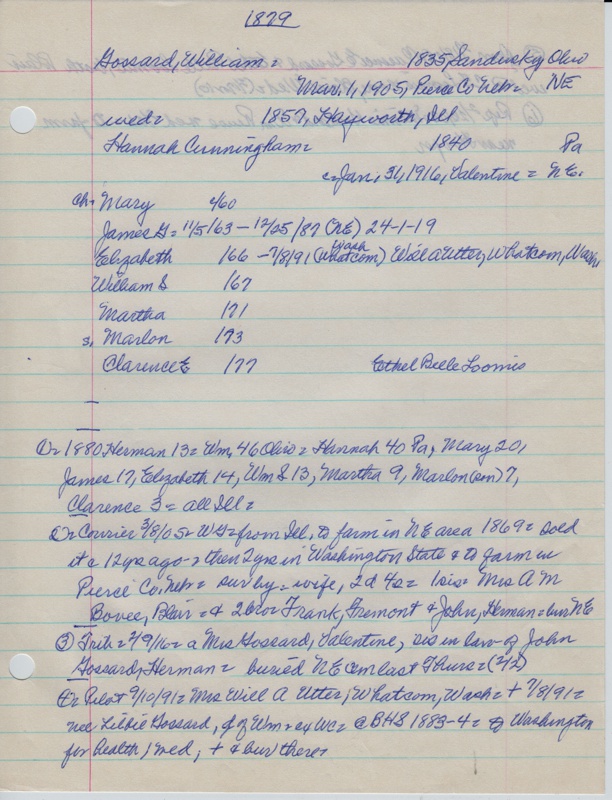 1879
Gossard, William = 1835, Sandusky Ohio
Mar. 1, 1905, Pierce Co Neb = NE
wed = 1857, Hayworth, Ill
Hannah Cunningham = 1840 Pa
c = Jan, 31, 1916, Valentine = NE.
ch. Mary c/60
James G = 11/5/63 - 12/25/87 (NE) 24-1-19
Elizabeth 166 - 7/8/91 (Whatcom) Wash Will A Utter, Whatcom, Wash
William S 167
Martha 171
s. Marlon 173
Clarence E 177 Ethel Belle Loomis
① = 1880, Herman 13 = Wm, 46 Ohio = Hannah 40 Pa, Mary 20,
James 17, Elizabeth 14, Wm S 13, Martha 9, Marlon (son) 7,
Clarence 3 = all Ill =
② = Courier 3/8/05 = WG = from Ill, to farm in NE area 1869 = sold
it c 12 yrs ago = then 2 yrs in Washington State & to farm in
Pierce Co, Neb = sur by = wife, 2d 4s = 1 sis = Mrs A M
Bovee, Blair = & 2 bro = Frank, Fremont & John, Herman = bur NE
③ Trib = 2/9/16 = a Mrs Gossard, Valentine, sis in law of John
Gossard, Herman = buried NE cem last Thurs = (2/2)
Pilot 9/10/91 = Mrs Will A Utter, Whatcom, Wash = + 7/8/91 =
nee Libbie Gossard, d of Wm = @ BHS 1883-4 = to Washington
for health, wed, + & bur there =